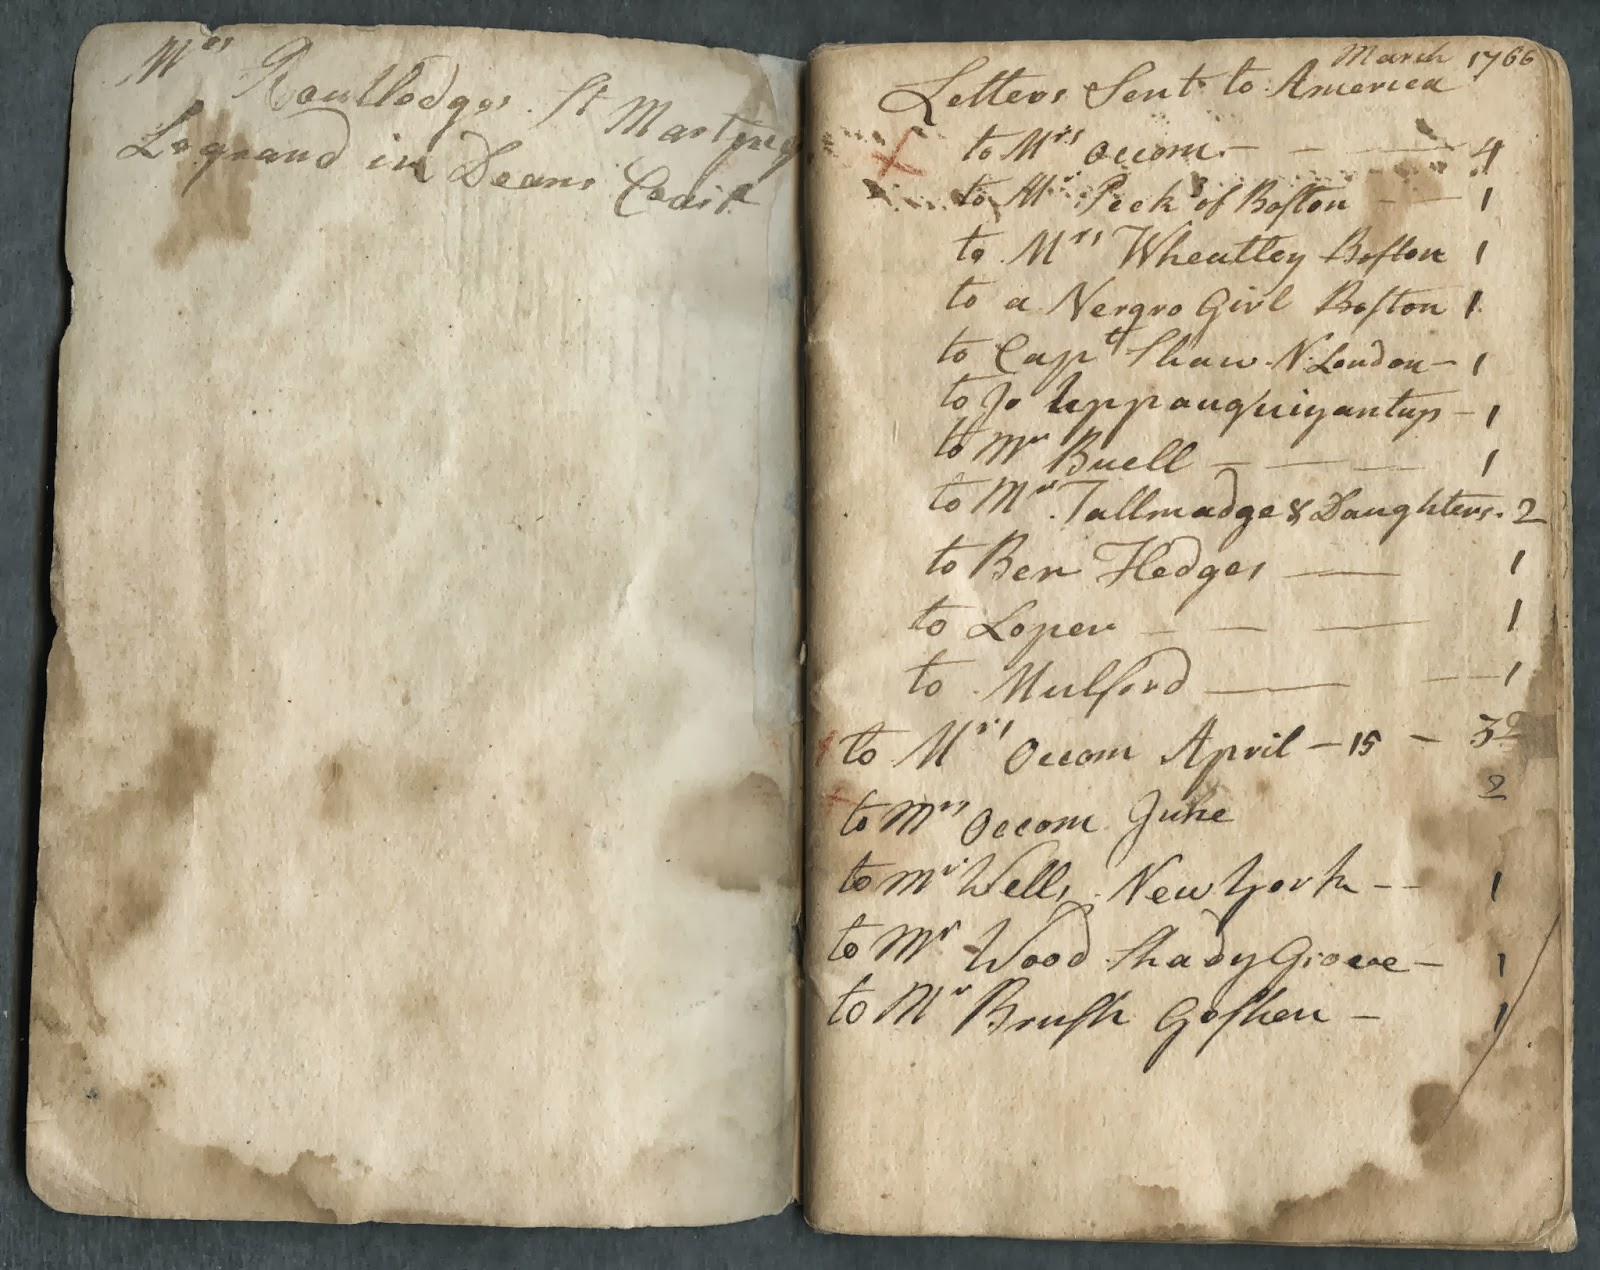 Mrs Routledges St Martins
Legrand in Deans Coart
March 1766
Letters Sent to America
to Mrs Occom — 4
to Mr Peck of Boston — 1
to Mrs Wheatley Boston 1
to a Nergro Girl Boston 1
to Capt Shaw N: London — 1
to Jo Uppauquiyantup — 1
to Mr Buell — 1
to Mr Tallmadge & Daughters. 2
to Ben Hedges — 1
to Loper — 1
to Mulford — 1
to Mrs Occom April — 15 — 3
to Mrs Occom June 2
to Mr Wells New York -- 1
to Mr Wood Shady Grove — 1
to Mr Brush Goshen — 1